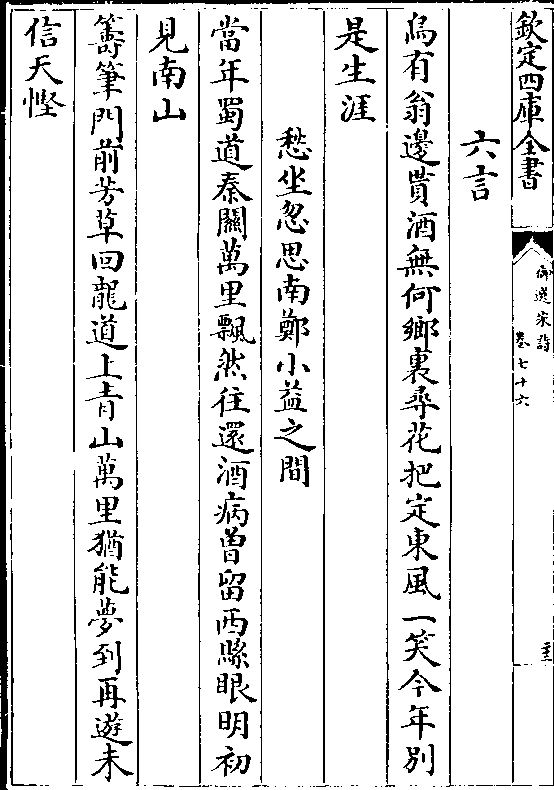 欽定四庫全書
御選宋詩
卷七十六
六言
烏有翁邊貰酒無何鄉裏尋花把定東風一笑今年別
是生涯
愁坐忽思南鄭小益之間
當年蜀道秦關萬里飄然往還酒病曾留西縣眼明初
見南山
籌筆門前芳草回龍道上青山萬里猶能夢到再遊未
信天慳